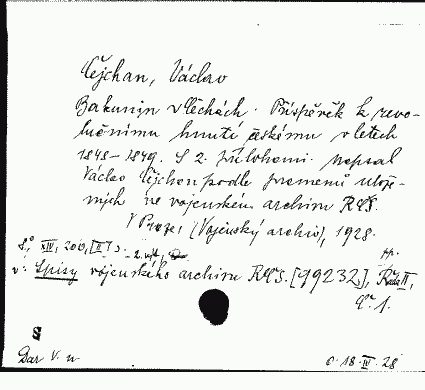 Čejchan, Václav
Bakunin v Čechách. Příspěvěk k revo-
lučnímu hnutí českému v letech
1848-1849. S 2. přílohami. napsal
Václav Čejchan podle pramenů ulože-
ných ve vojenském archivu RČS.
V Praze, (Vojenský archiv), 1928.
8°, XIV, 200, [II] s.
v: Spisy vojenského archivu RČS. [99232], Řada II,
č. 1.
Dar V. n
0. 18. IV 28